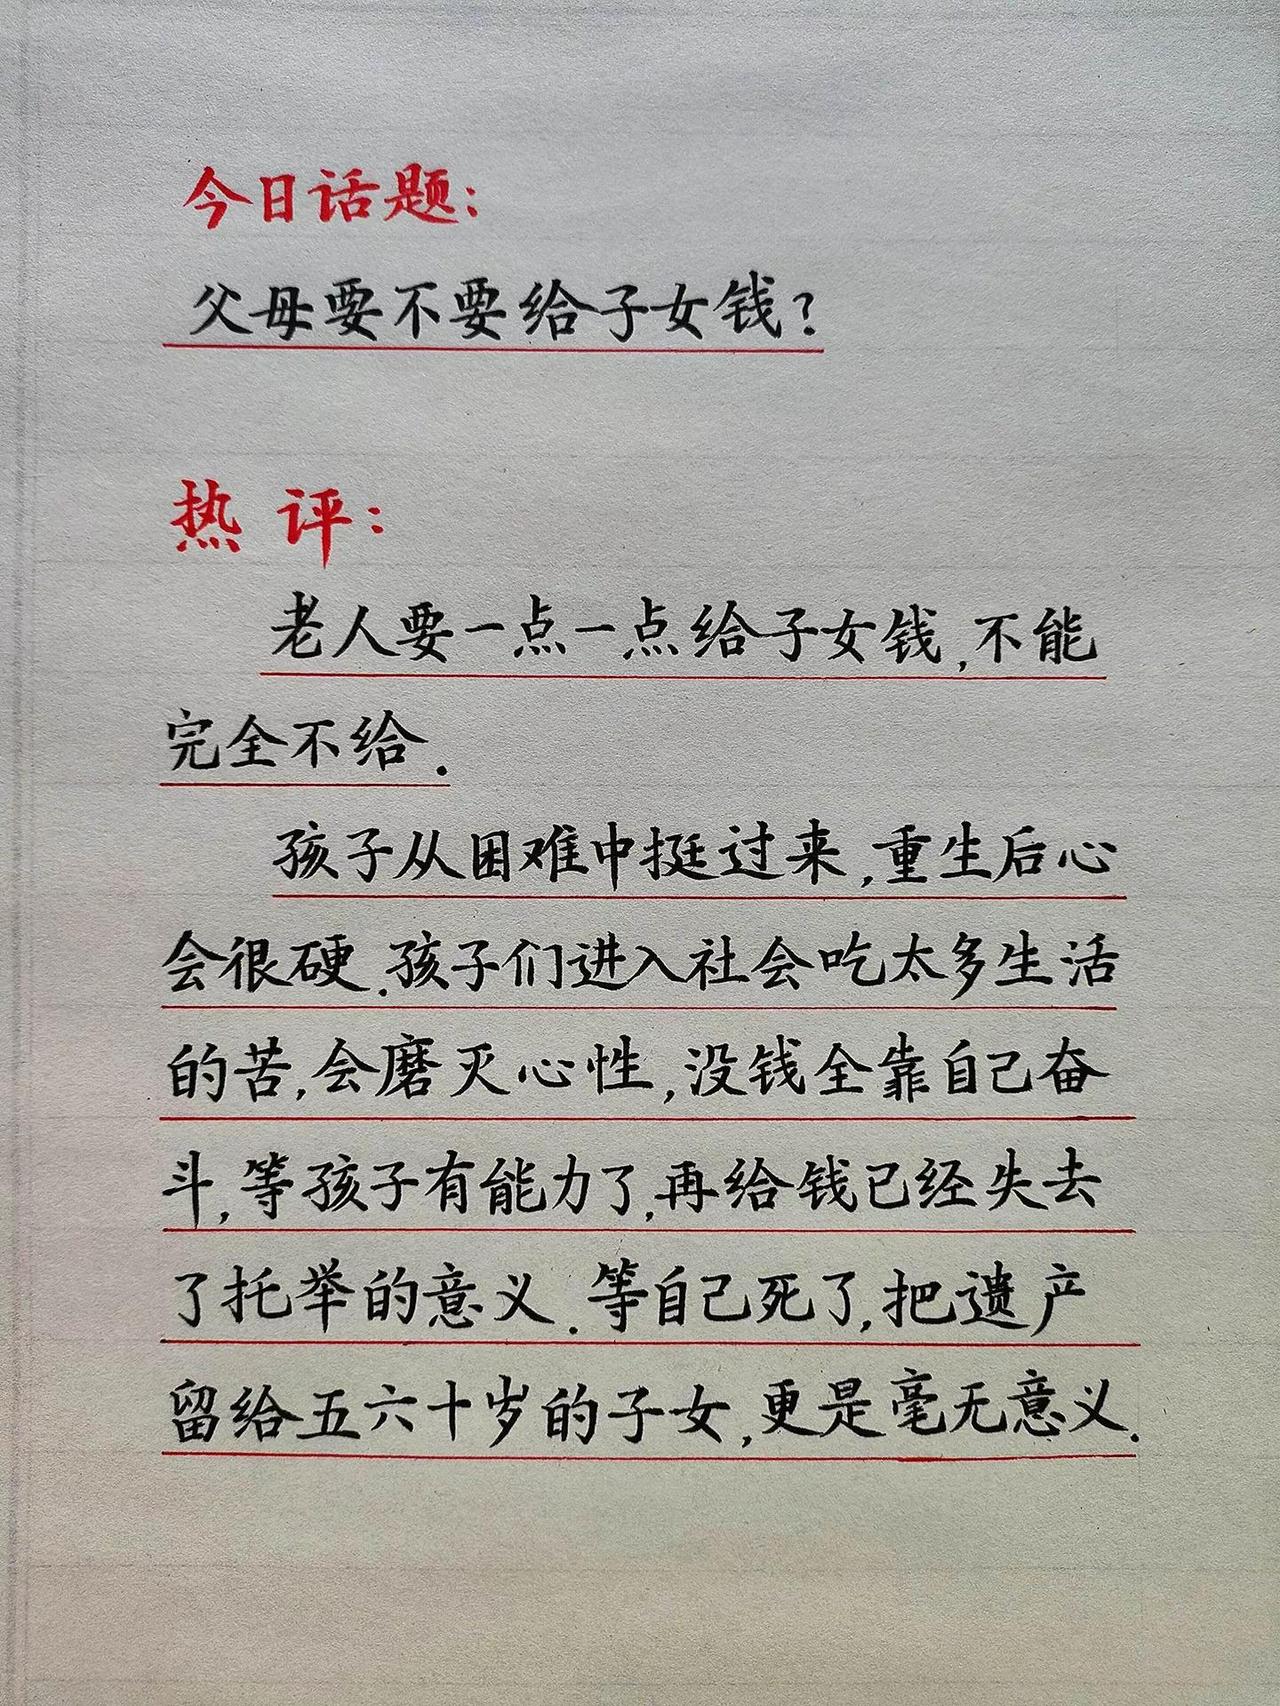 今日话题:
父母要不要给子女钱?
热评:
老人要一点一点给子女钱,不能
完全不给.
孩子从困难中挺过来,重生后心
会很硬.孩子们进入社会吃太多生活
的苦,会磨灭心性,没钱全靠自己奋
斗,等孩子有能力了,再给钱已经失去
了托举的意义.等自己死了,把遗产
留给五六十岁的子女,更是毫无意义.